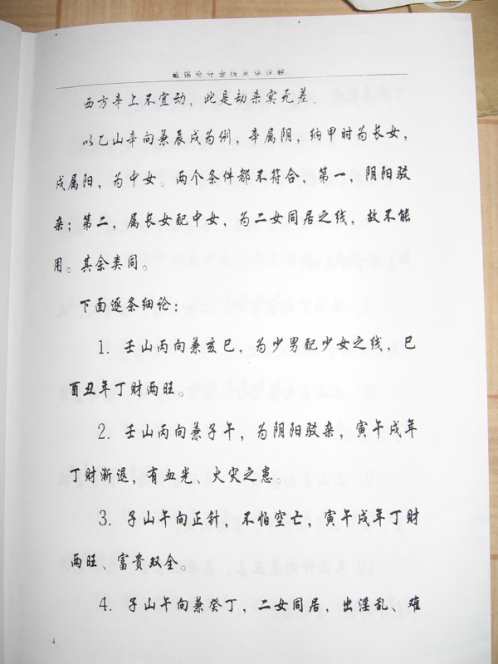 西方辛上不宜动，此是动来实无差．
以乙山辛向兼辰戌为例，辛属阴，纳甲时为长女，
戌属阳，为中女。两个条件都不符合，第一，阴阳驳
杂；第二，属长女配中女，为二女同居之线，故不能
用。其余类同。
下面逐条细论：
1．壬山丙向兼亥巳，为少男配少女之线，巳
酉丑年丁财两旺。
2．壬山丙向兼子午，为阴阳驳杂，寅午戌年
丁财渐退，有血光、火灾之患。
3．子山午向正针，不怕空亡，寅午戌年丁财
两旺、富贵双全。
4．子山午向兼癸丁，二女同居，出淫乱、难